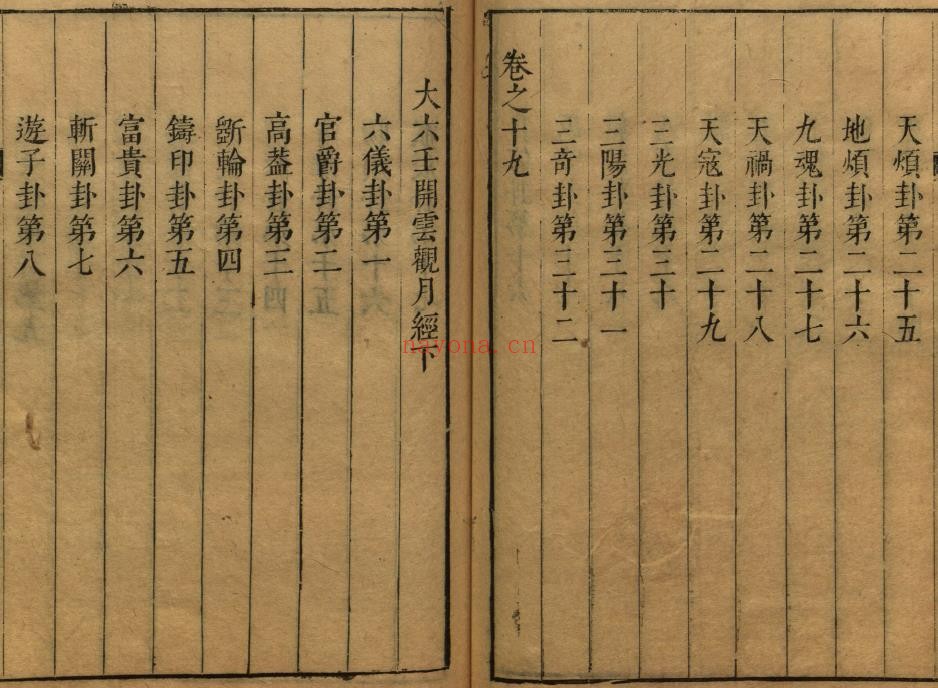 天煩卦第二十五
地煩卦第二十六
九魂卦第二十七
天禍卦第二十八
天寇卦第二十九
三光卦第三十
三陽卦第三十一
三奇卦第三十二
卷之十九
大六壬開雲觀月經下
六儀卦第一
官爵卦第二
高葢卦第三
斵輪卦第四
鑄印卦第五
富貴卦第六
斬關卦第七
遊子卦第八
nayona.cn